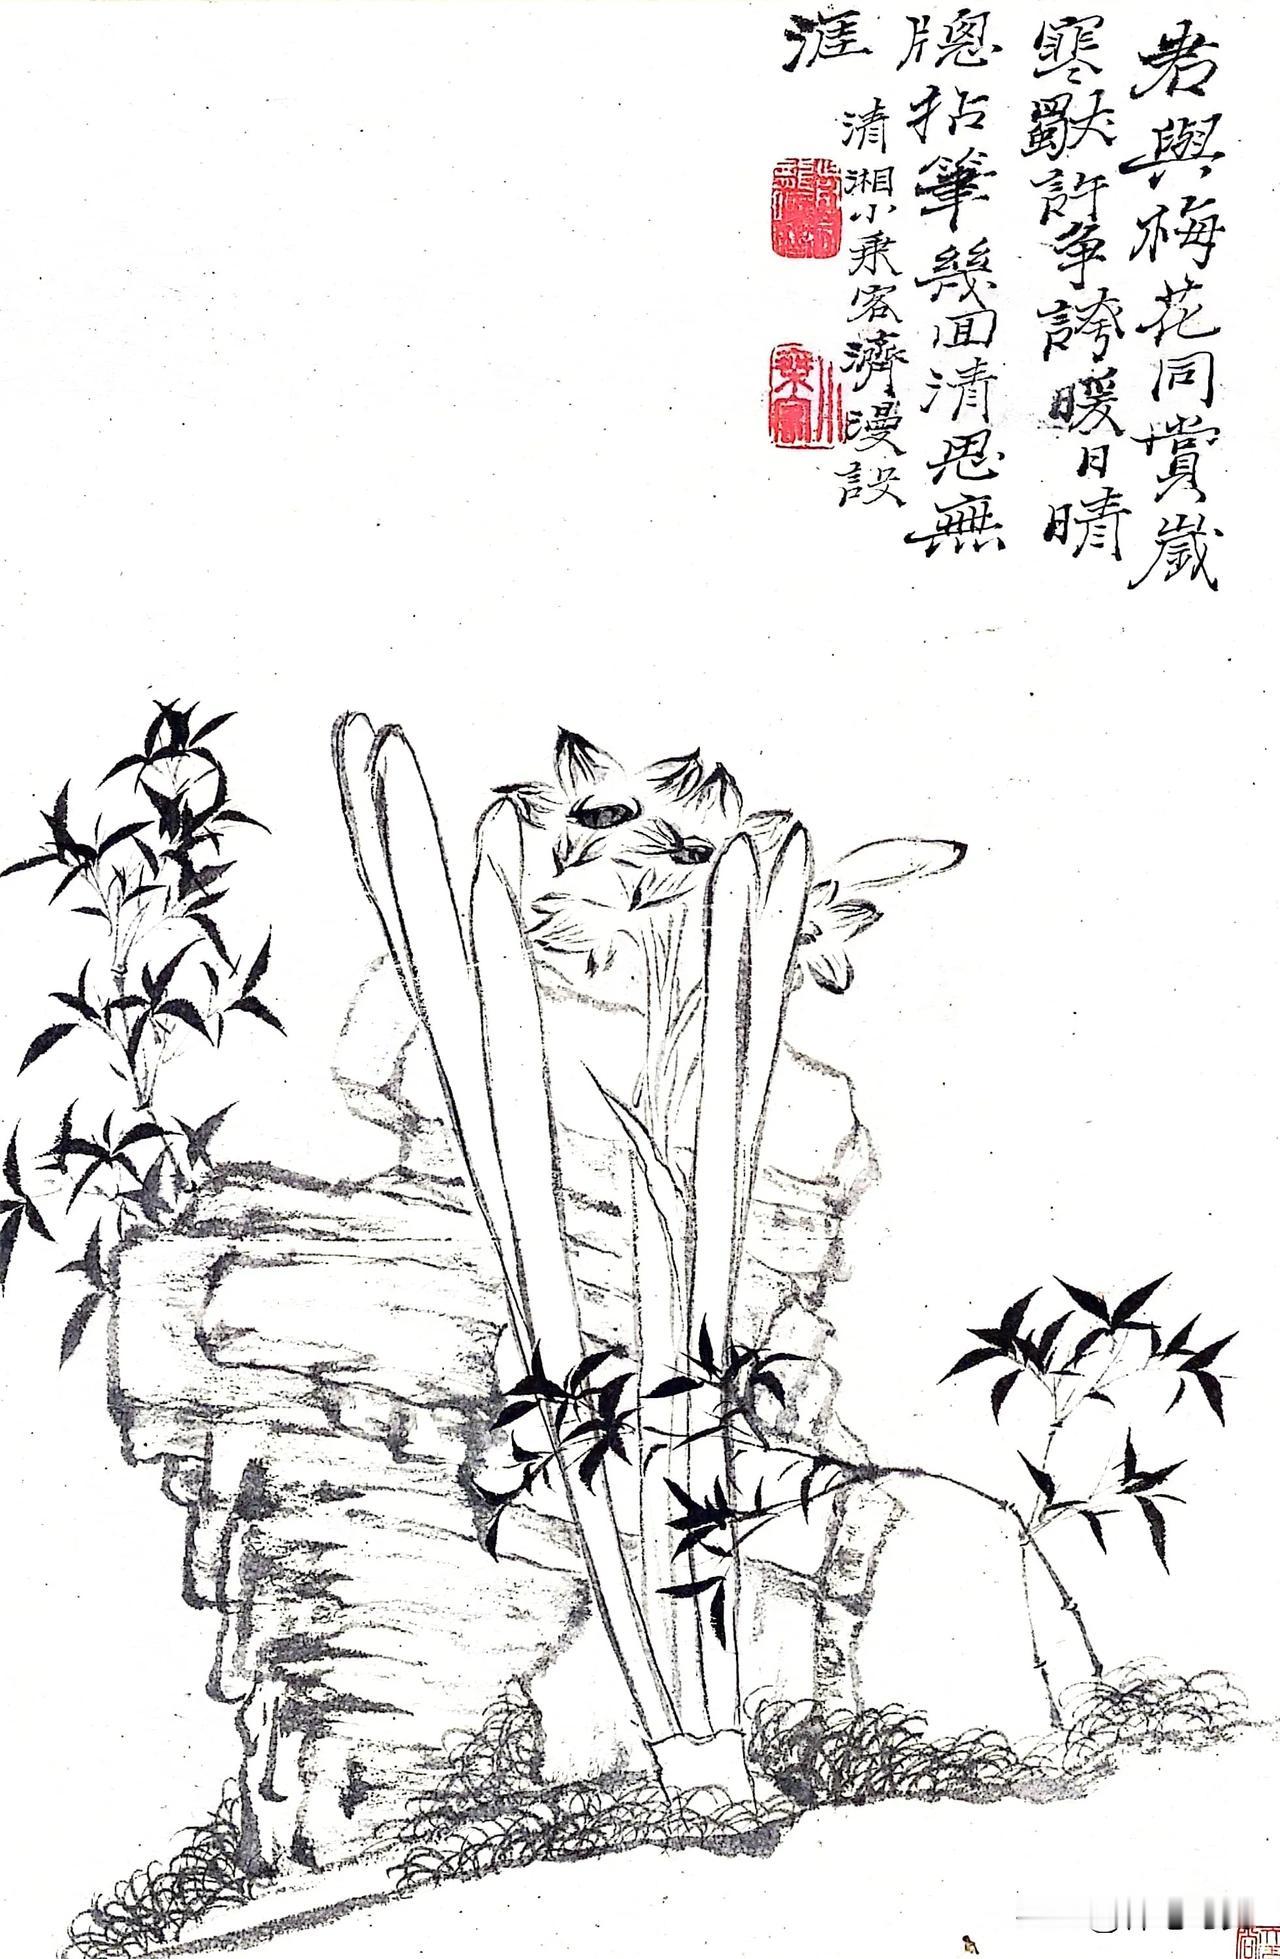 君與梅花同賞歲
寒獸許爭誇暖日晴
窻拈筆幾回清思無
涯
清湘小乘客濟漫設